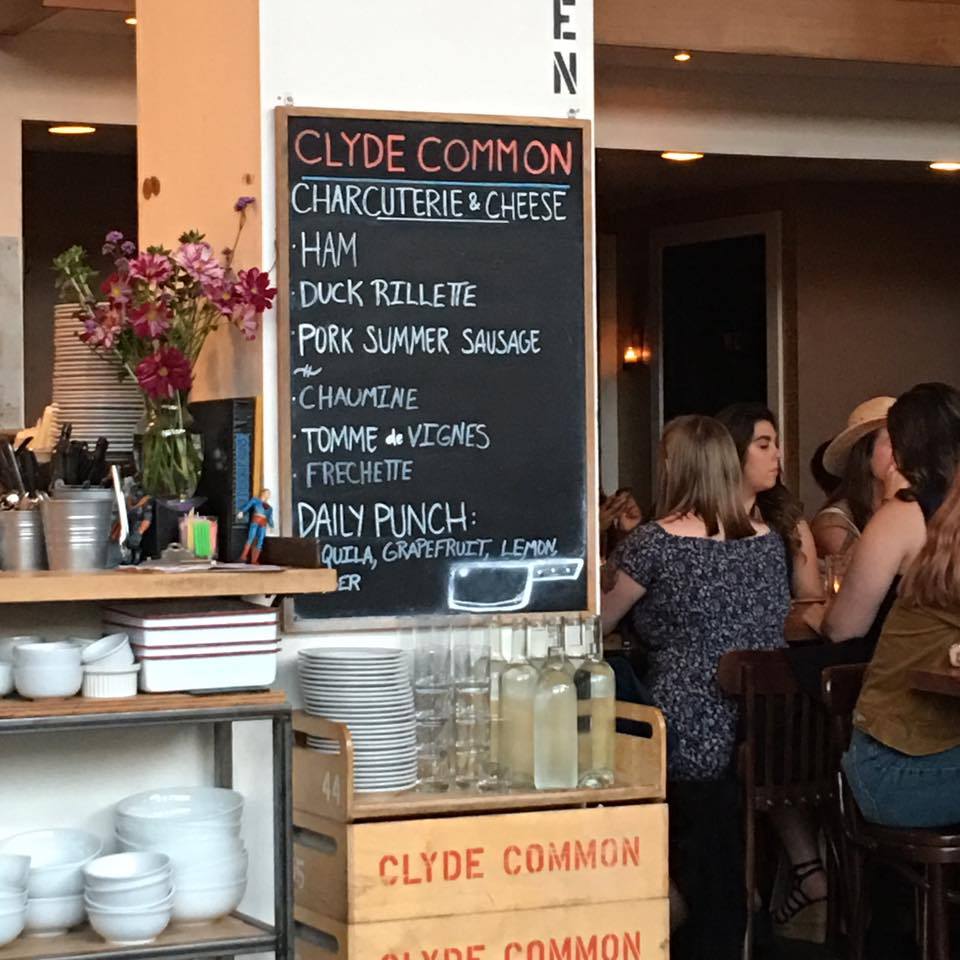 EN
CLYDE COMMON
CHARCUTERIE & CHEESE
· HAM
· DUCK RILLETTE
· PORK SUMMER SAUSAGE
· CHAUMINE
· TOMME de VIGNES
· FRECHETTE
DAILY PUNCH:
QUILA, GRAPEFRUIT, LEMON,
ER
44
CLYDE COMMON
CLYDE COMMON